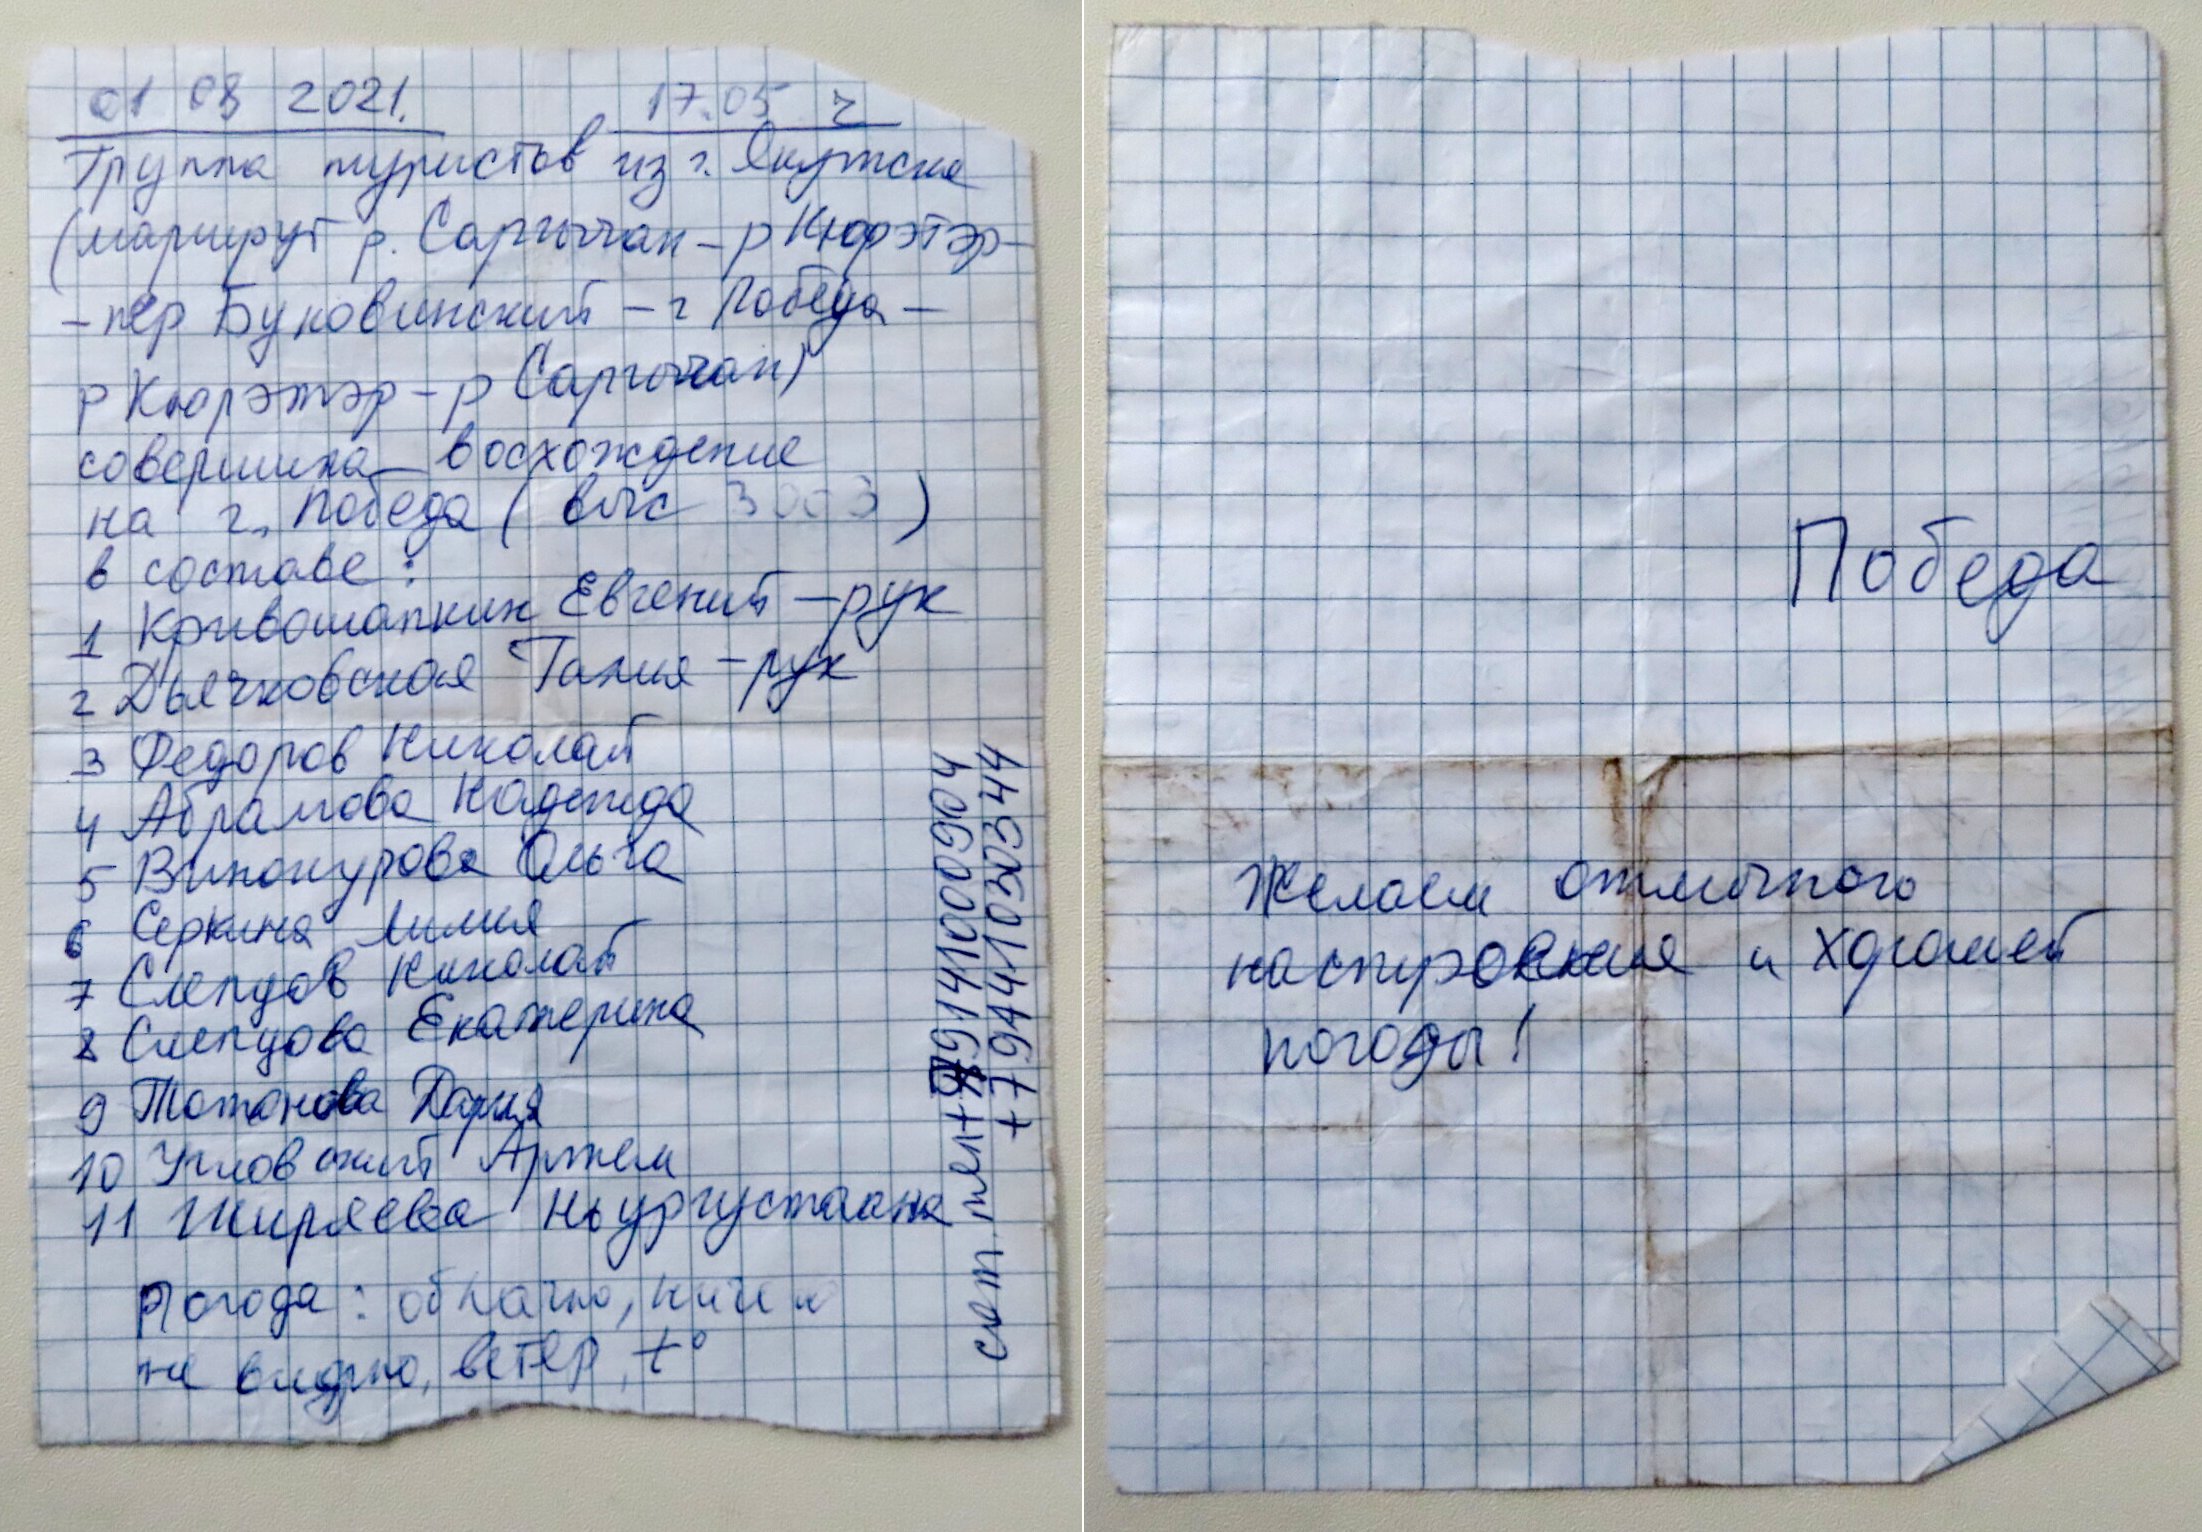 01 08 2021. 17.05 ч
Группа туристов из г. Якутска
(маршрут р. Саргычан – р Кюрэтэр –
– пер Буковинский – г Победа –
р Кюрэтэр – р Саргычан)
совершила восхождение
на г. Победа ( выс 3003 )
в составе:
1 Кривошапкин Евгений – рук
2 Дьячковская Талия – рук
3 Федоров Николай
4 Абрамова Надежда
5 Винокурова Ольга
6 Серкина Лилия
7 Слепцов Николай
8 Слепцова Екатерина
9 Тотонова Дария
10 Угловский Артем
11 Жиряева Ньургустаана
Погода: облачно, ничего
не видно, ветер, t°
сот. тел +79141000904
+79441030344
Победа
Желаем отличного
настроения и хорошей
погоды!